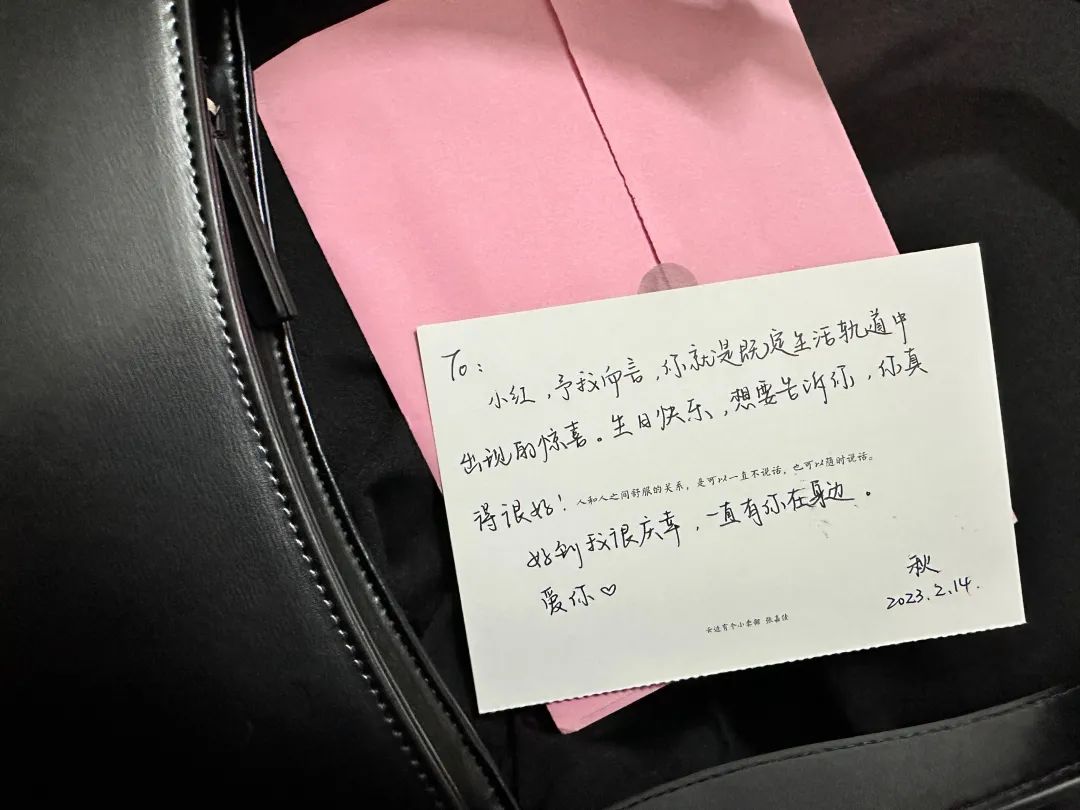 To:
小红，予我而言，你就是既定生活轨道中
出现的惊喜。生日快乐，想要告诉你，你真
得很好！
人和人之间舒服的关系，是可以一直不说话，也可以随时说话。
好到我很庆幸，一直有你在身边。
爱你♡
秋
2023.2.14.
云边有个小卖部 张嘉佳